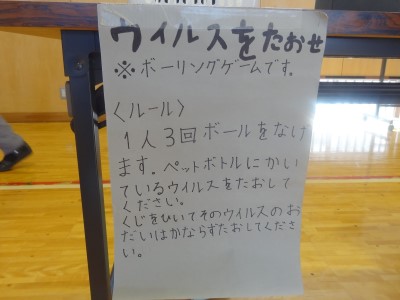 ウイルスをたおせ
※ボーリングゲームです.
〈ルール〉
1人3回ボールをなけ
ます.ペットボトルにかい
ているウイルスをたおして
ください。
くじをひいてそのウイルスのお
だいはかならずたおしてくださ
い。